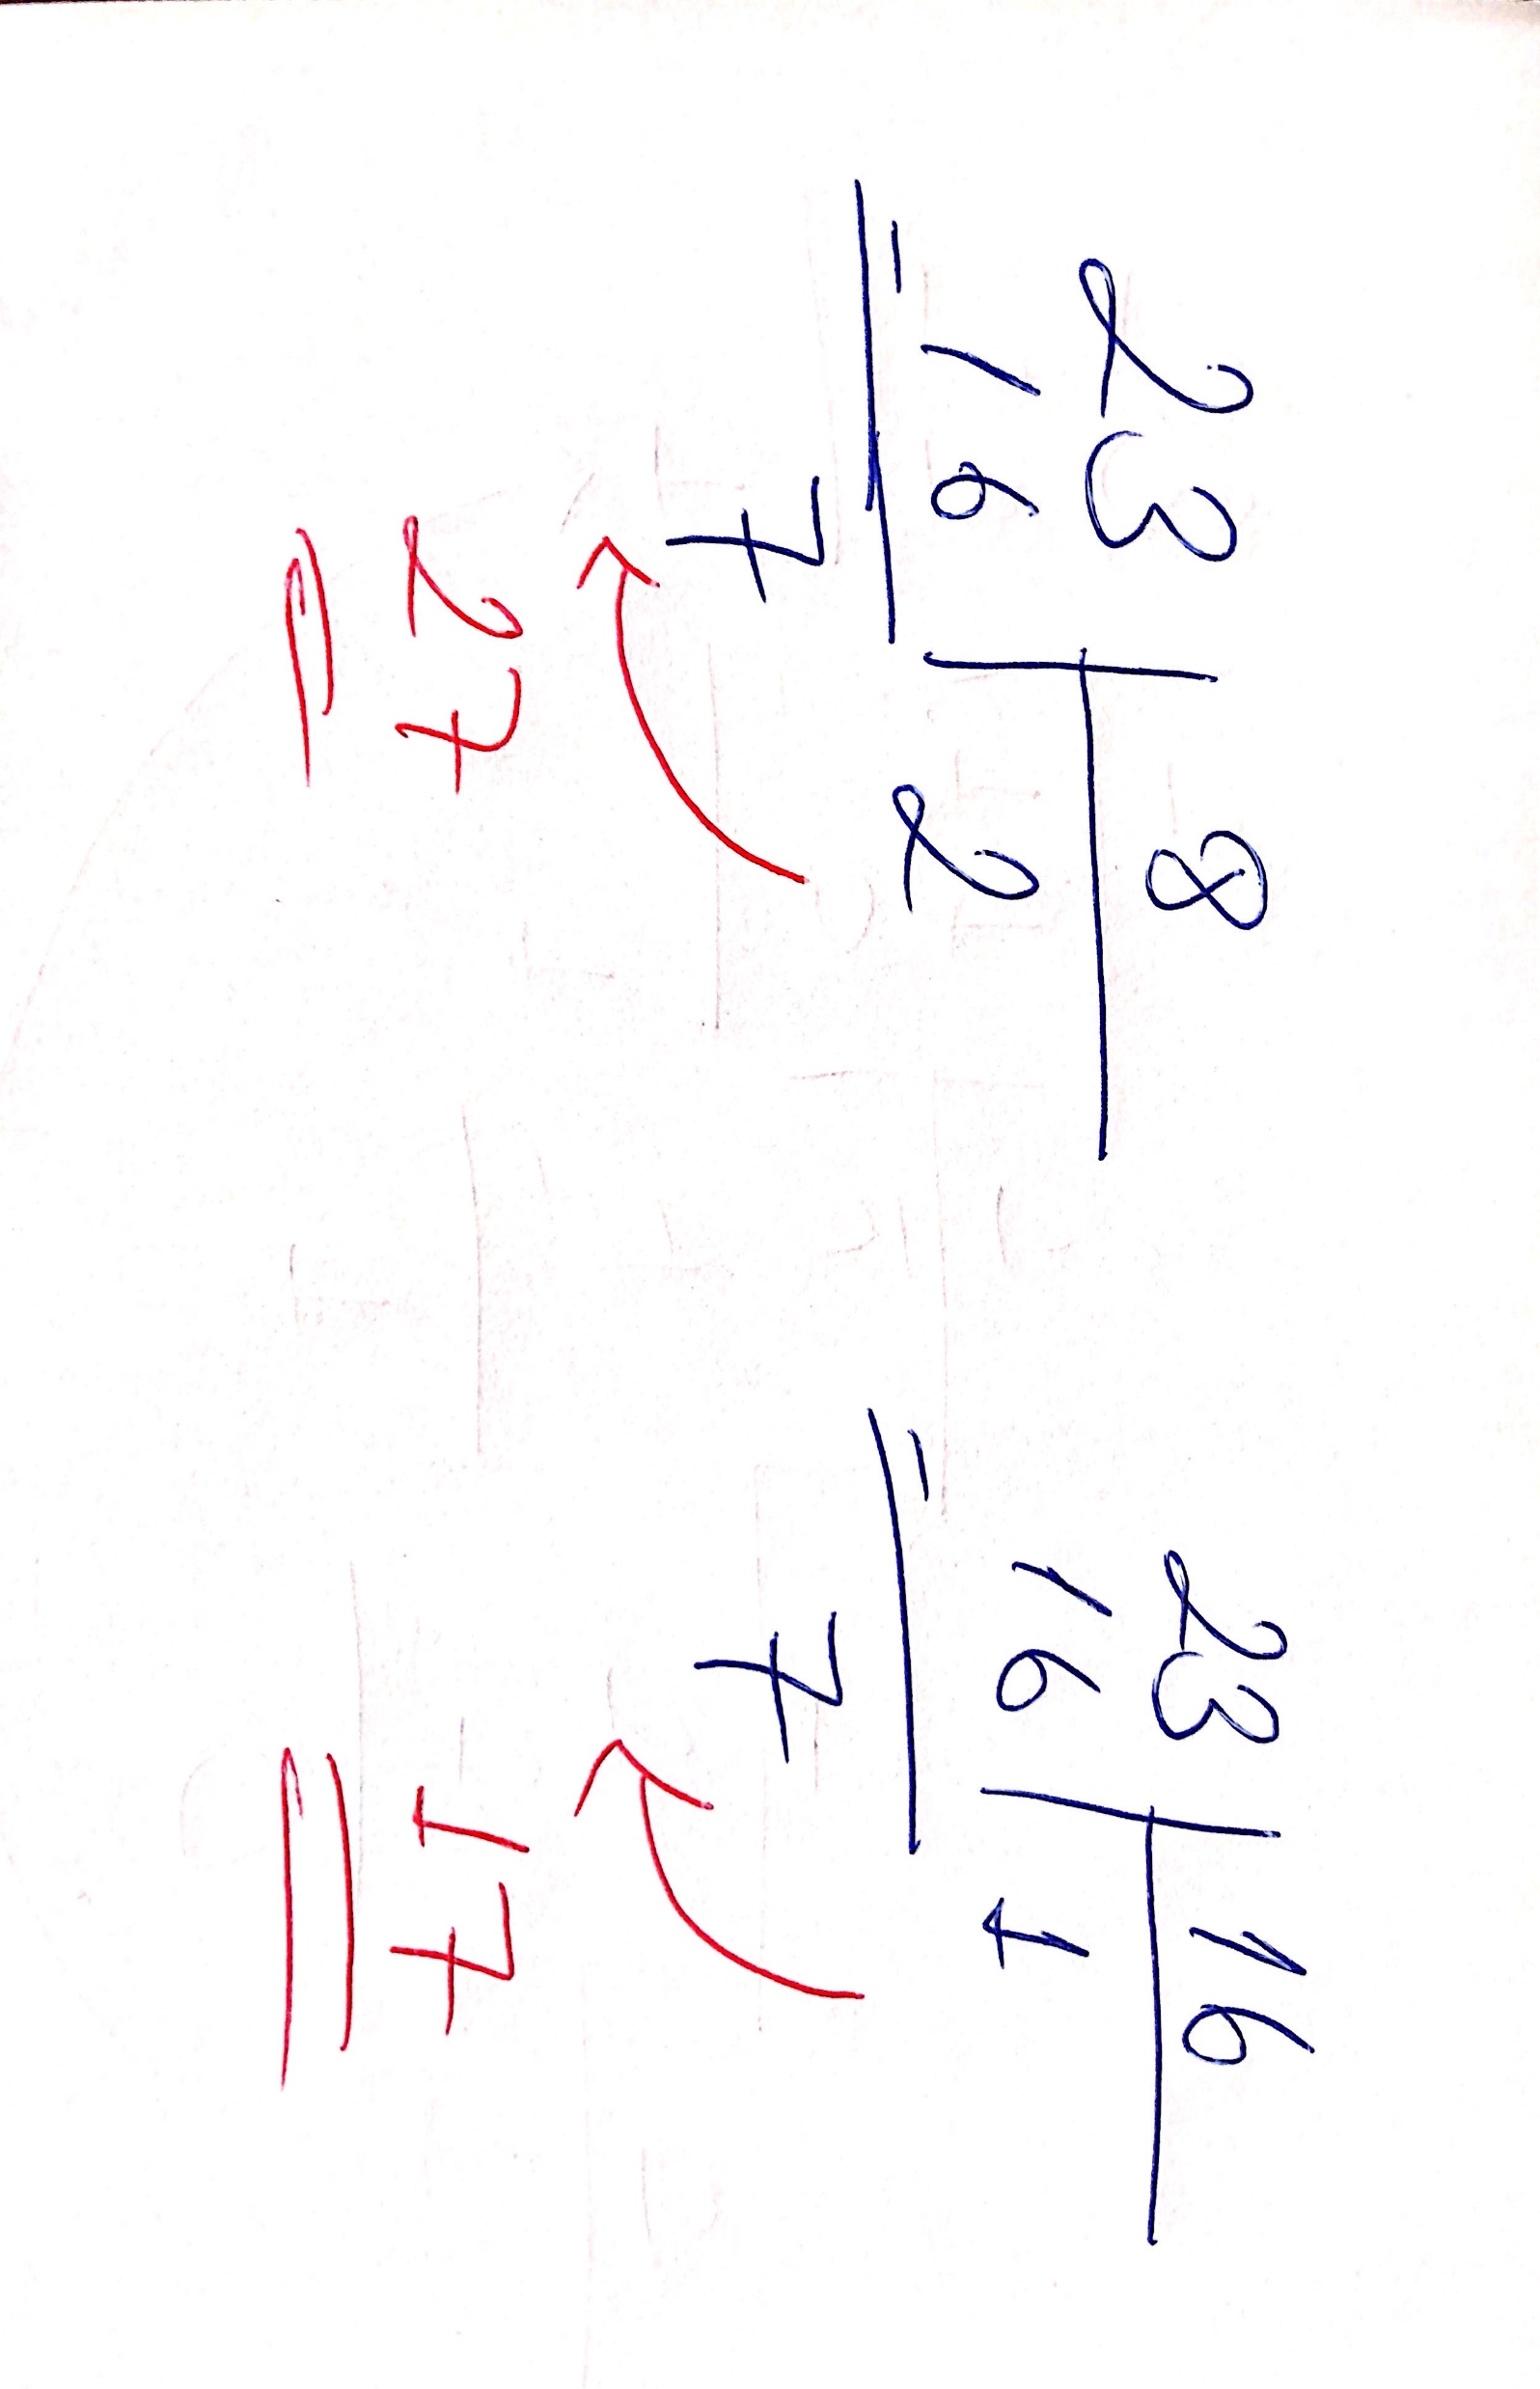 23 8
- 16 2
7
27
23 16
- 16 1
7
17